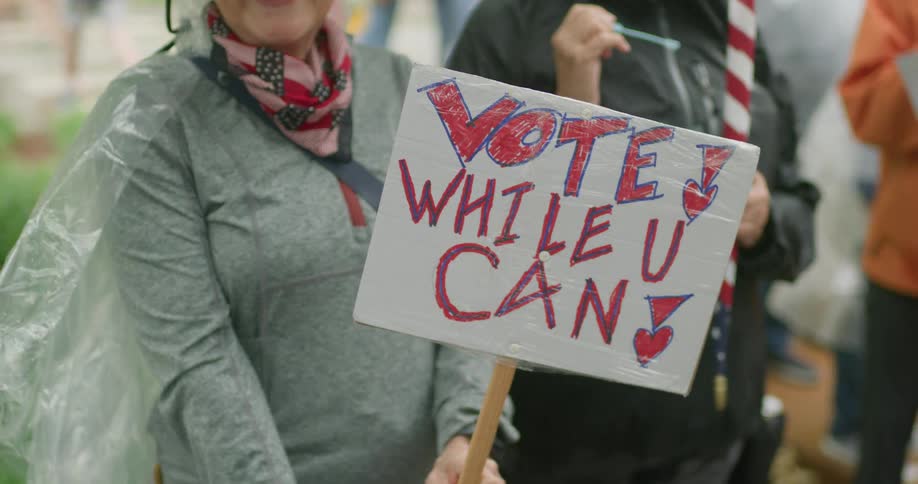 VOTE!
WHILE U
CAN!